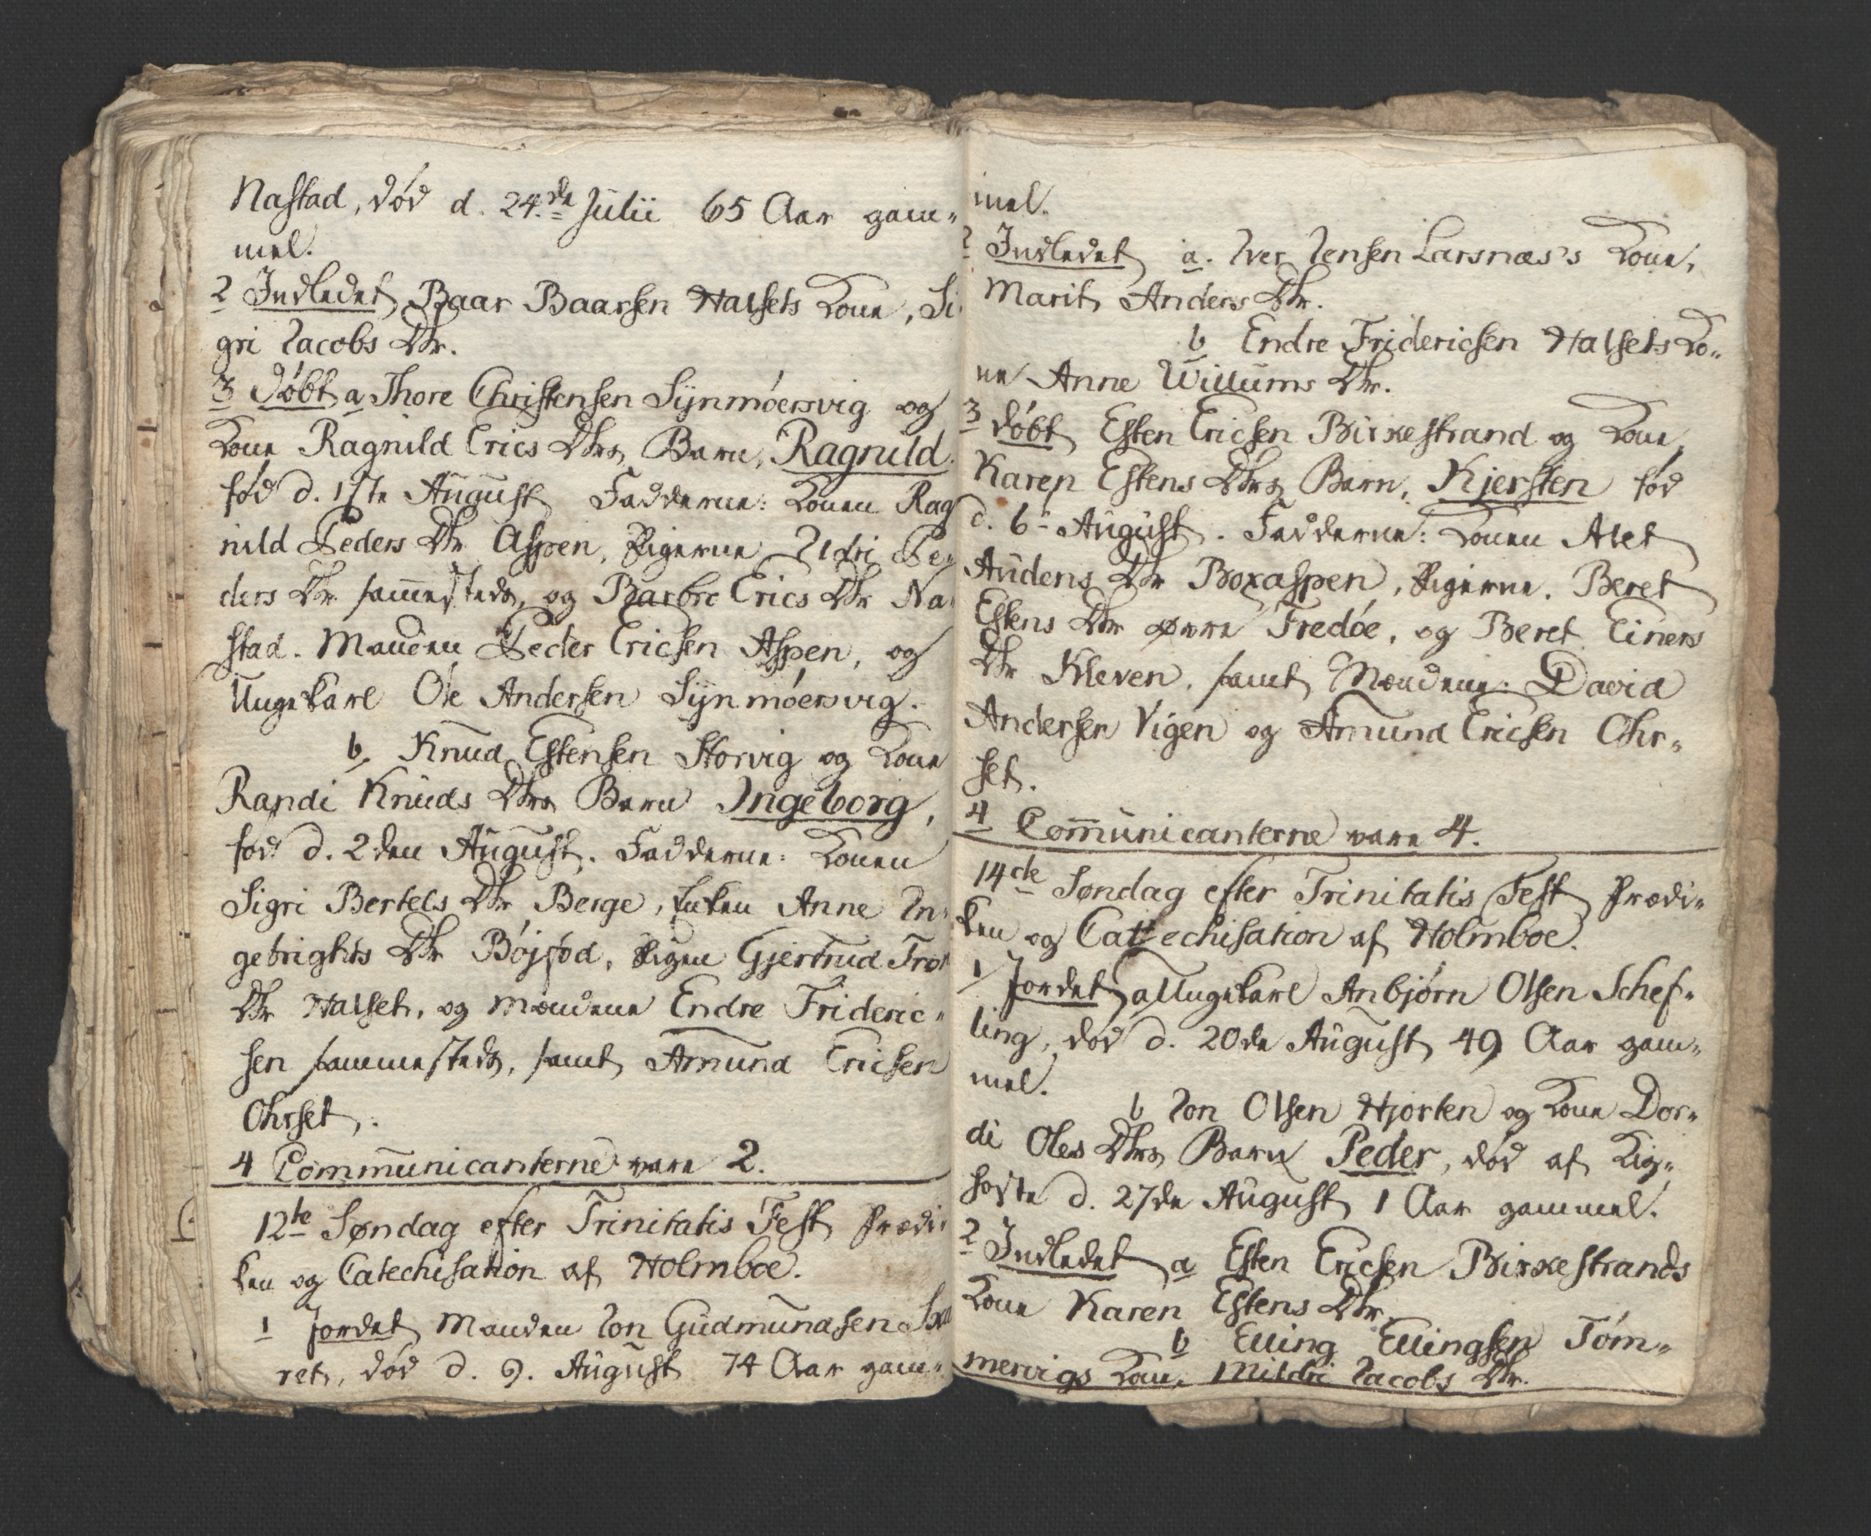 Nastad, død d. 24de Julii 65 Aar gam-
mel.
2 Indledet Baar Baarsen Halsets Kone, Si
gri Jacobs Dtr.
3 Døbt a Thore Christensen Sÿnmóersvig og
Kone Ragnild Erics Dtrs Barn, Ragnild
fød d. 1ste August Fadderne: Konen Rag
nild Peders Dtr Aspen, Pigerne Zidri Pe-
ders Dtr sammesteds, og Barbro Erics Dtr Na-
stad. Manden Peder Ericsen Aspen, og
Ungekarl Ole Andersen Sÿnmóersvig.
b Knud Estensen Storvig og Kone
Randi Knuds Dtrs Barn Ingeborg,
fød d. 2den August. Fadderne: Konen
Sigri Bertels Dtr Berge, Enken Anne In-
gebrights Dtr Bøjsød, Pigen Gjertrud Tron
Dtr Halset, og Mændene Endre Frideric-
sen sammesteds, samt Amund Ericsen
Ohrset.
4 Communicanterne vare 2.
12te Søndag efter Trinitatis Fest Prædi-
ken og Catechisation af Holmboe.
1 Jordet Manden Jon Gudmundsen
ret, død d. 9. August 74 Aar gam-
mel.
2 Indledet a. Iver Jensen Larsnæs's Kone,
Marit Anders Dtr.
b Endre Fridericsen Halsets Ko-
ne Anne Willums Dtr.
3 Døbt Esten Ericsen Birkestrand og Kone
Karen Estens Dtrs Barn, Kjersten fød
d. 6- August. Fadderne: Konen Alet
Audens Dtr Boxaspen, Pigerne. Beret
Estens Dtr øvre Fredøe, og Beret Einers
Dtr Kleven, samt Mændene: David
Andersen Vigen og Amund Ericsen Ohr-
set.
4 Communicanterne vare 4.
14de Søndag efter Trinitatis Fest Prædi-
ken og Catechisation af Holmboe.
1 Jordet a Ungekarl Anbjørn Olsen Schef-
ling, død d. 20de August 49 Aar gam-
mel.
b Jon Olsen Hjorten og Kone Dor-
di Oles Dtrs Barn Peder, død af Kig-
hoste d. 27de August 1 Aar gammel.
2 Indledet a Esten Ericsen Birkestrands
Kone Karen Estens Dtr.
b Elling Ellingsen Tøm-
mervigs Kone Mildri Jacobs Dtr.